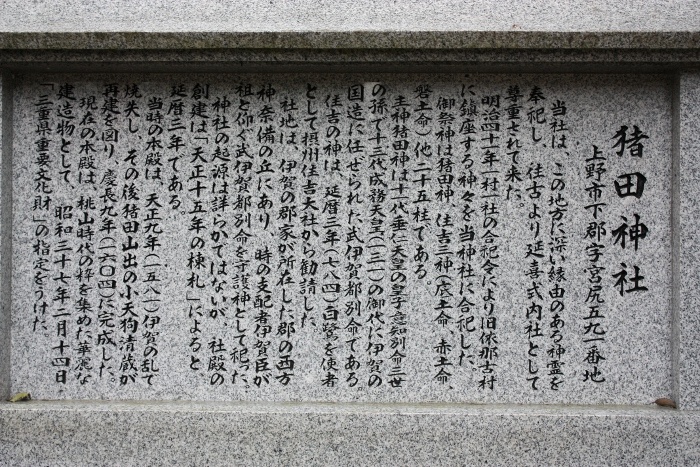 猪田神社
上野市下郡字宮尻五九一番地
当社は、この地方に深い縁由のある神霊を
奉祀し、往古より延喜式内社として
尊重されて来た。
明治四十一年一村一社の合祀令により旧依那古村
に鎮座する神々を当神社に合祀した。
御祭神は猪田神、住吉三神（底土命、赤土命、
磐土命）他二十五柱である。
主神猪田神は十一代垂仁天皇の皇子意知別命三世
の孫で十三代成務天皇（一三一）の御代に伊賀の
国造に任ぜられた武伊賀都別命である。
住吉の神は、延暦三年（七八四）白鷺を使者
として摂州住吉大社から勧請した。
社地は、伊賀の郡家が所在した郡の西方
神奈備の丘にあり、時の支配者伊賀臣が
祖と仰ぐ武伊賀都別命を守護神として祀った。
神社の起源は詳らかではないが、社殿の
創建は「天正十五年の棟札」によると
延暦三年である。
当時の本殿は、天正九年（一五八一）伊賀の乱で
焼失し、その後猪田山出の小天狗清蔵が
再建を図り、慶長九年（一六〇四）に完成した。
現在の本殿は、桃山時代の粋を集めた華麗な
建造物として、昭和三十七年二月十四日
「三重県重要文化財」の指定をうけた。